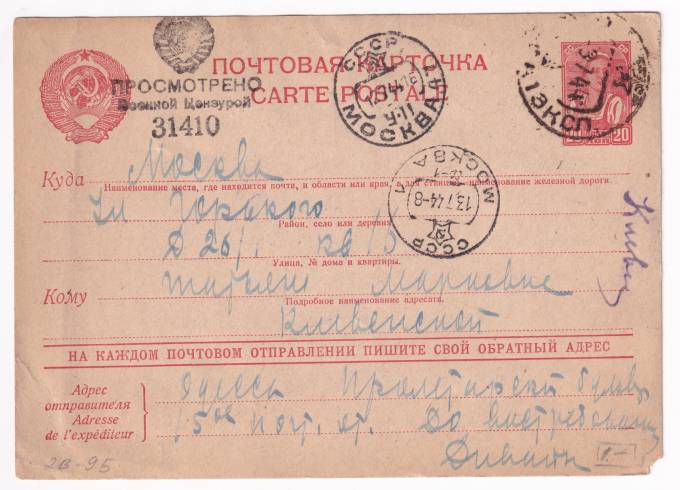 ПОЧТОВАЯ КАРТОЧКА
CARTE POSTALE
ПРОСМОТРЕНО
Военной Цензурой
31410
СССР
МОСКВА
МОСКВА
13.7.44-8
СССР
20
Куда Москва
Наименование места, где находится почта, и области или края, а для станций наименование железной дороги.
Ул Горького
Район, село или деревня
Д 26/1 кв 15
Улица, № дома и квартиры.
Кому Марковне
Подробное наименование адресата.
НА КАЖДОМ ПОЧТОВОМ ОТПРАВЛЕНИИ ПИШИТЕ СВОЙ ОБРАТНЫЙ АДРЕС
Адрес
отправителя
Adresse
de l'expéditeur
Одесса Пролетарский бульв
15ое почт. от. До востребования
2В-95
1.-